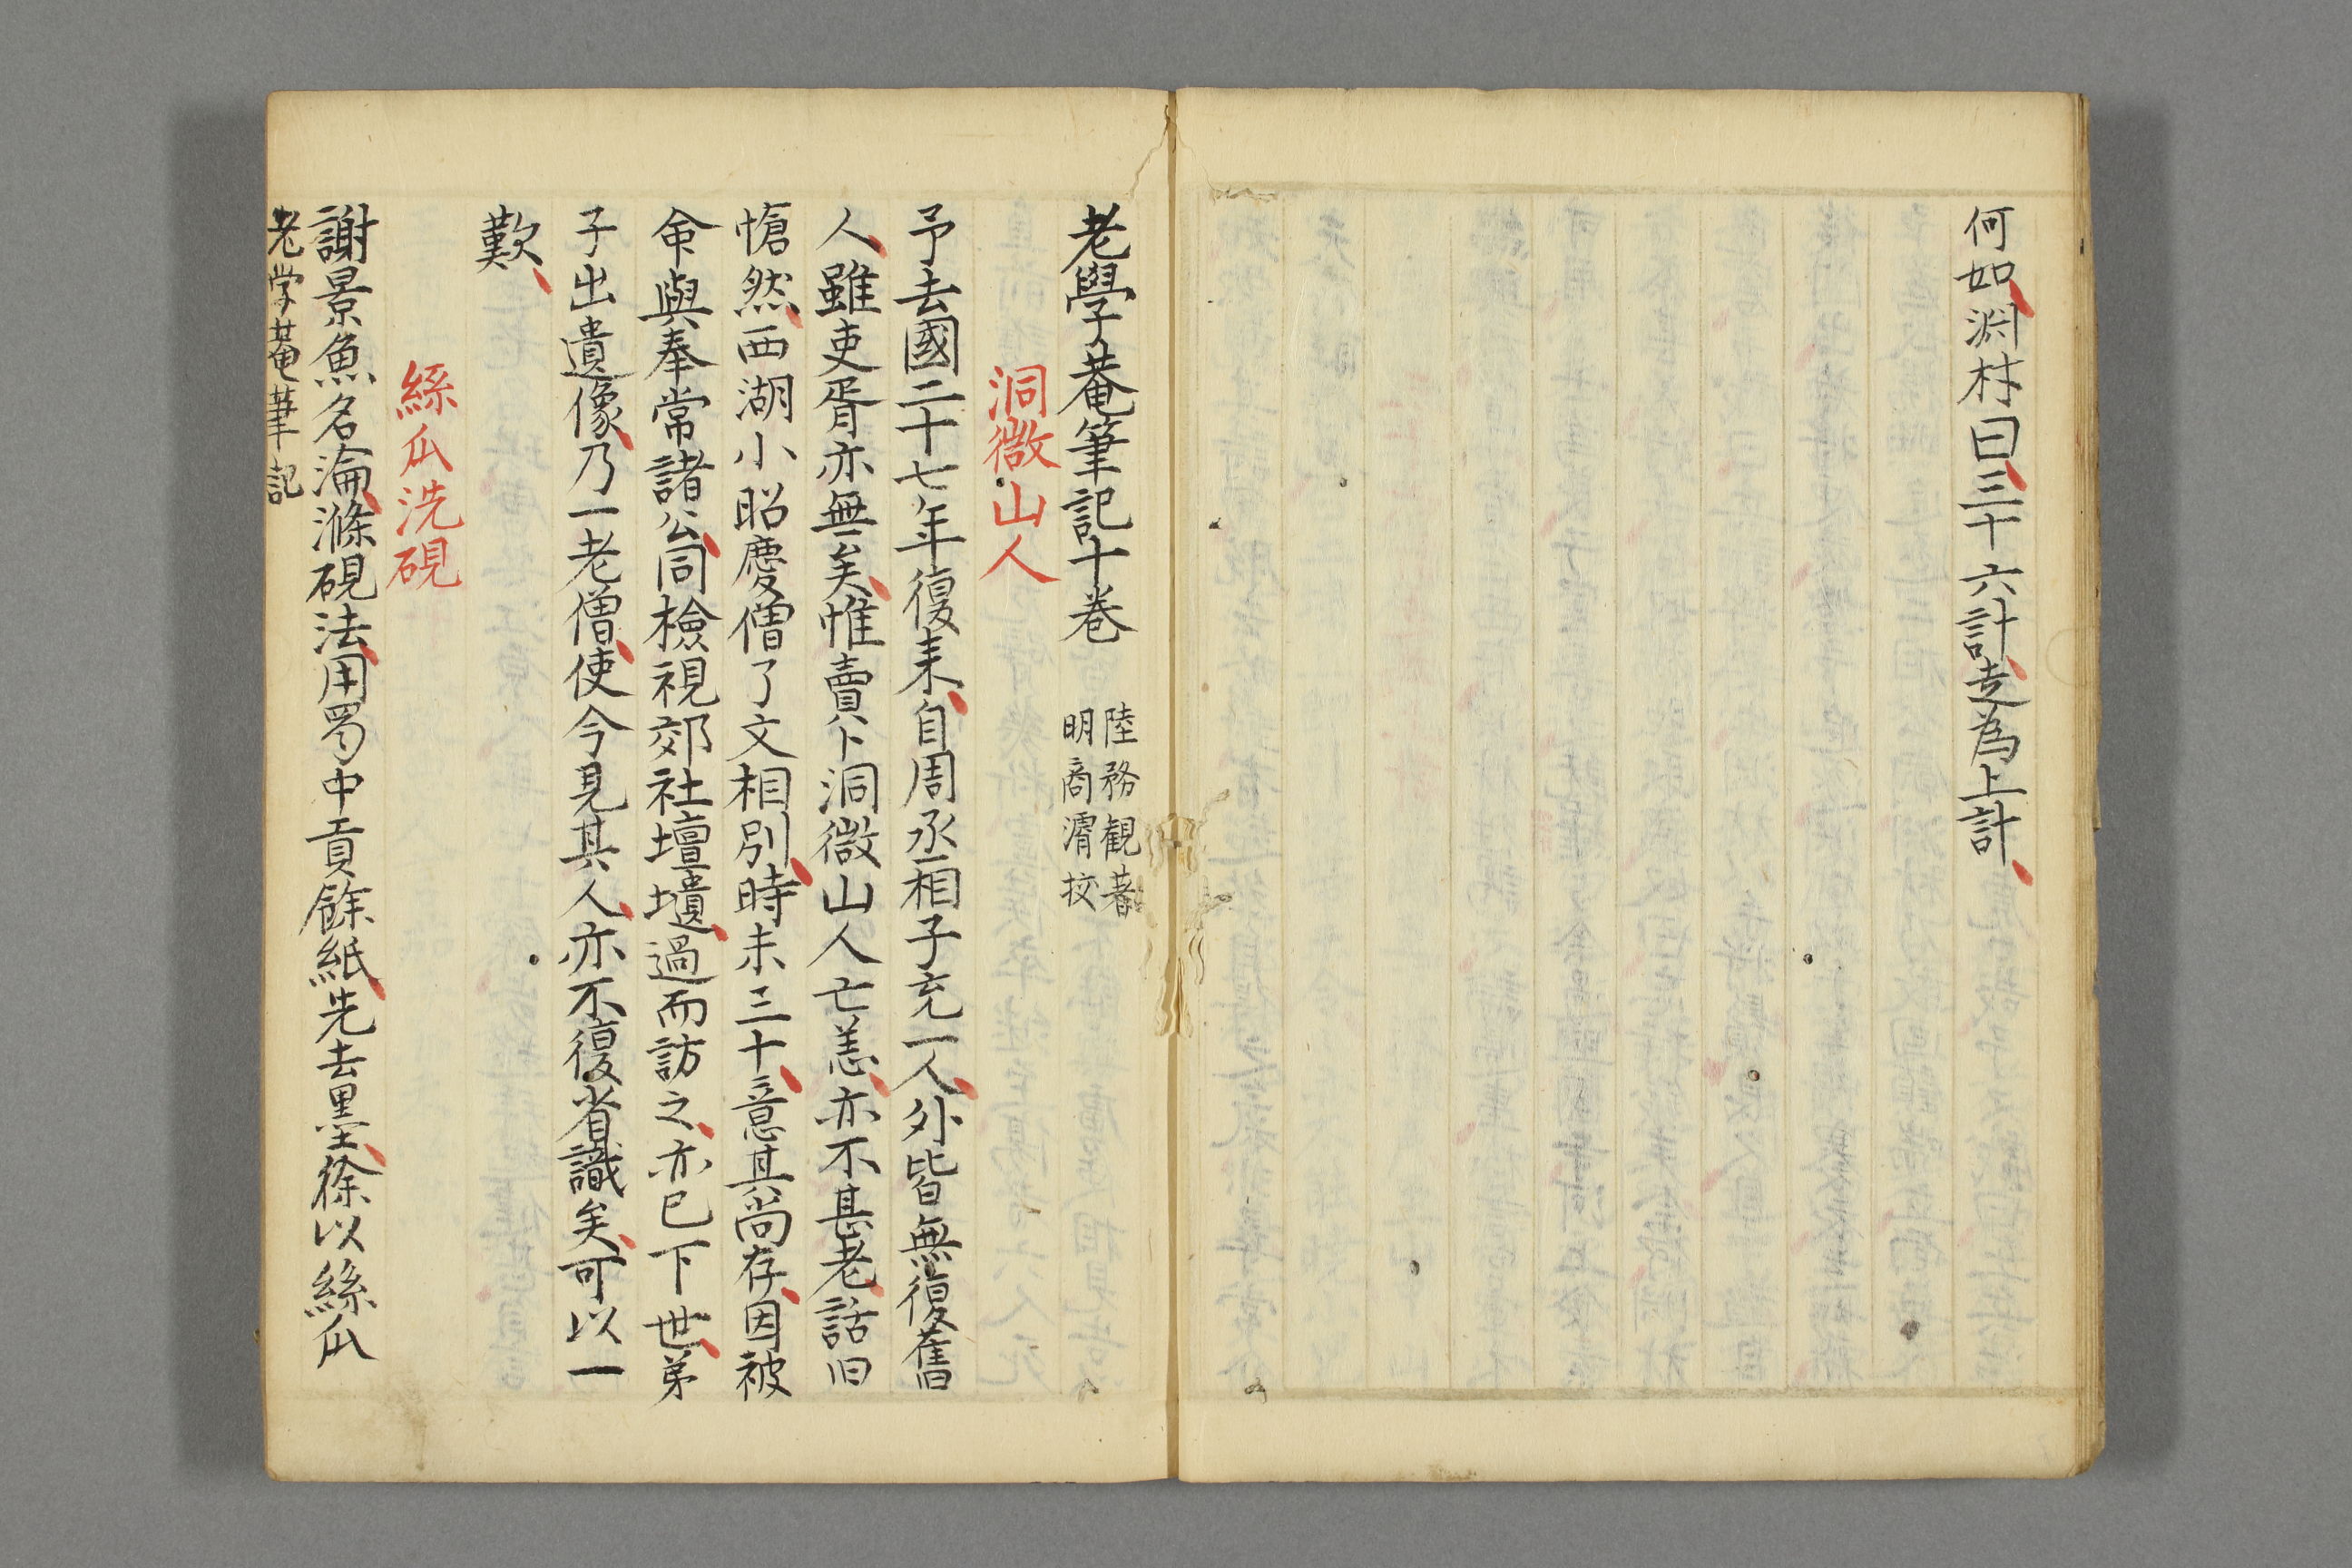 何如渊材曰三十六計走為上計
老學菴筆記十卷
陸務観著
明商濬挍
洞微山人
予去國二十七年復来自周丞相子充一人外皆無復舊
人雖吏胥亦無矣惟賣卜洞微山人亡恙亦不甚老話旧
愴然西湖小昭慶僧了文相別時未三十意其尚存因被
命與奉常諸公同檢視郊社壇壝過而訪之亦已下世弟
子出遺像乃一老僧使今見其人亦不復省識矣可以一
歎
絲瓜洗硯
謝景魚名淪滌硯法用蜀中貢餘紙先去墨徐以絲瓜
老学菴筆記